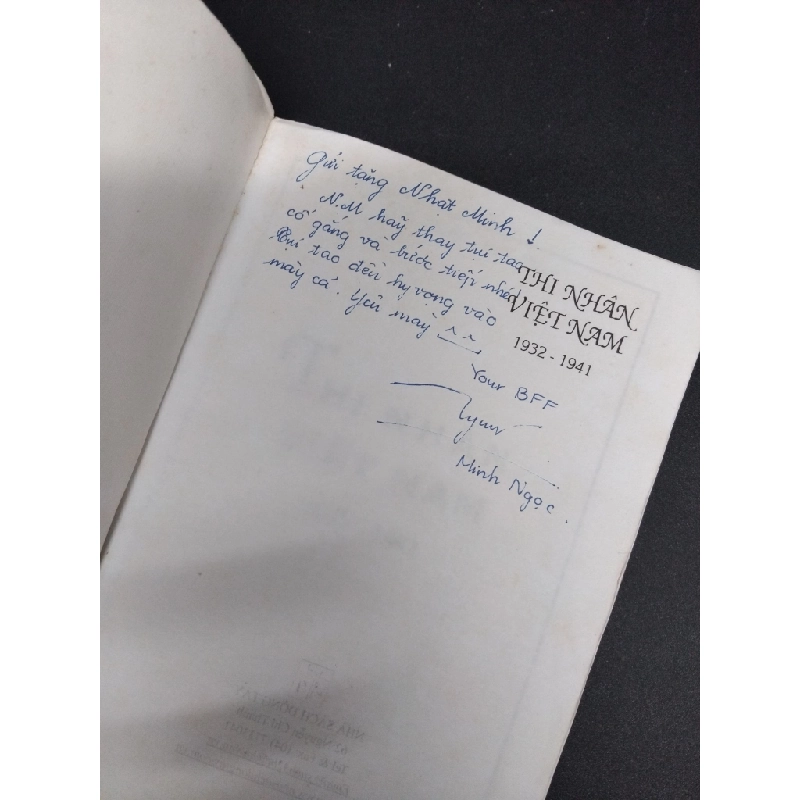 Gửi tặng Nhạt Minh !
N.M hãy thay tụi tao
cố gắng và bước tiếp nhé!
Tụi tao đều hy vọng vào
mày cả. Yêu mày ^^
THI NHÂN
VIỆT NAM
1932 - 1941
Your BFF
Minh Ngọc.